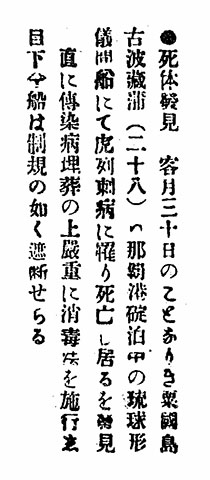 ●死体発見　客月三十日のことなりき粟國島
古波藏蒲（二十八）ハ那覇港碇泊中の琉球形
儀間船にて虎列剌病に罹り死亡し居るを発見
直に傳染病埋葬の上嚴重に消毒法を施行し
目下今船は制規の如く遮断せらる